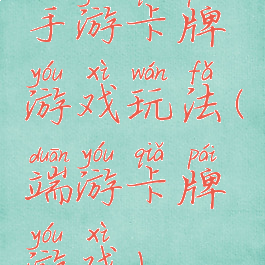 手游卡牌
yóu xì wán fǎ
游戏玩法(
duān yóu qiǎ pái
端游卡牌
yóu xì
游戏)